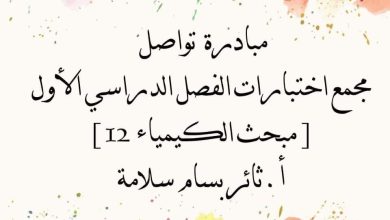 مبادرة تواصل
مجمع اختبارات الفصل الدراسي الأول
[ مبحث الكيمياء 12 ]
أ . ثائر بسام سلامة